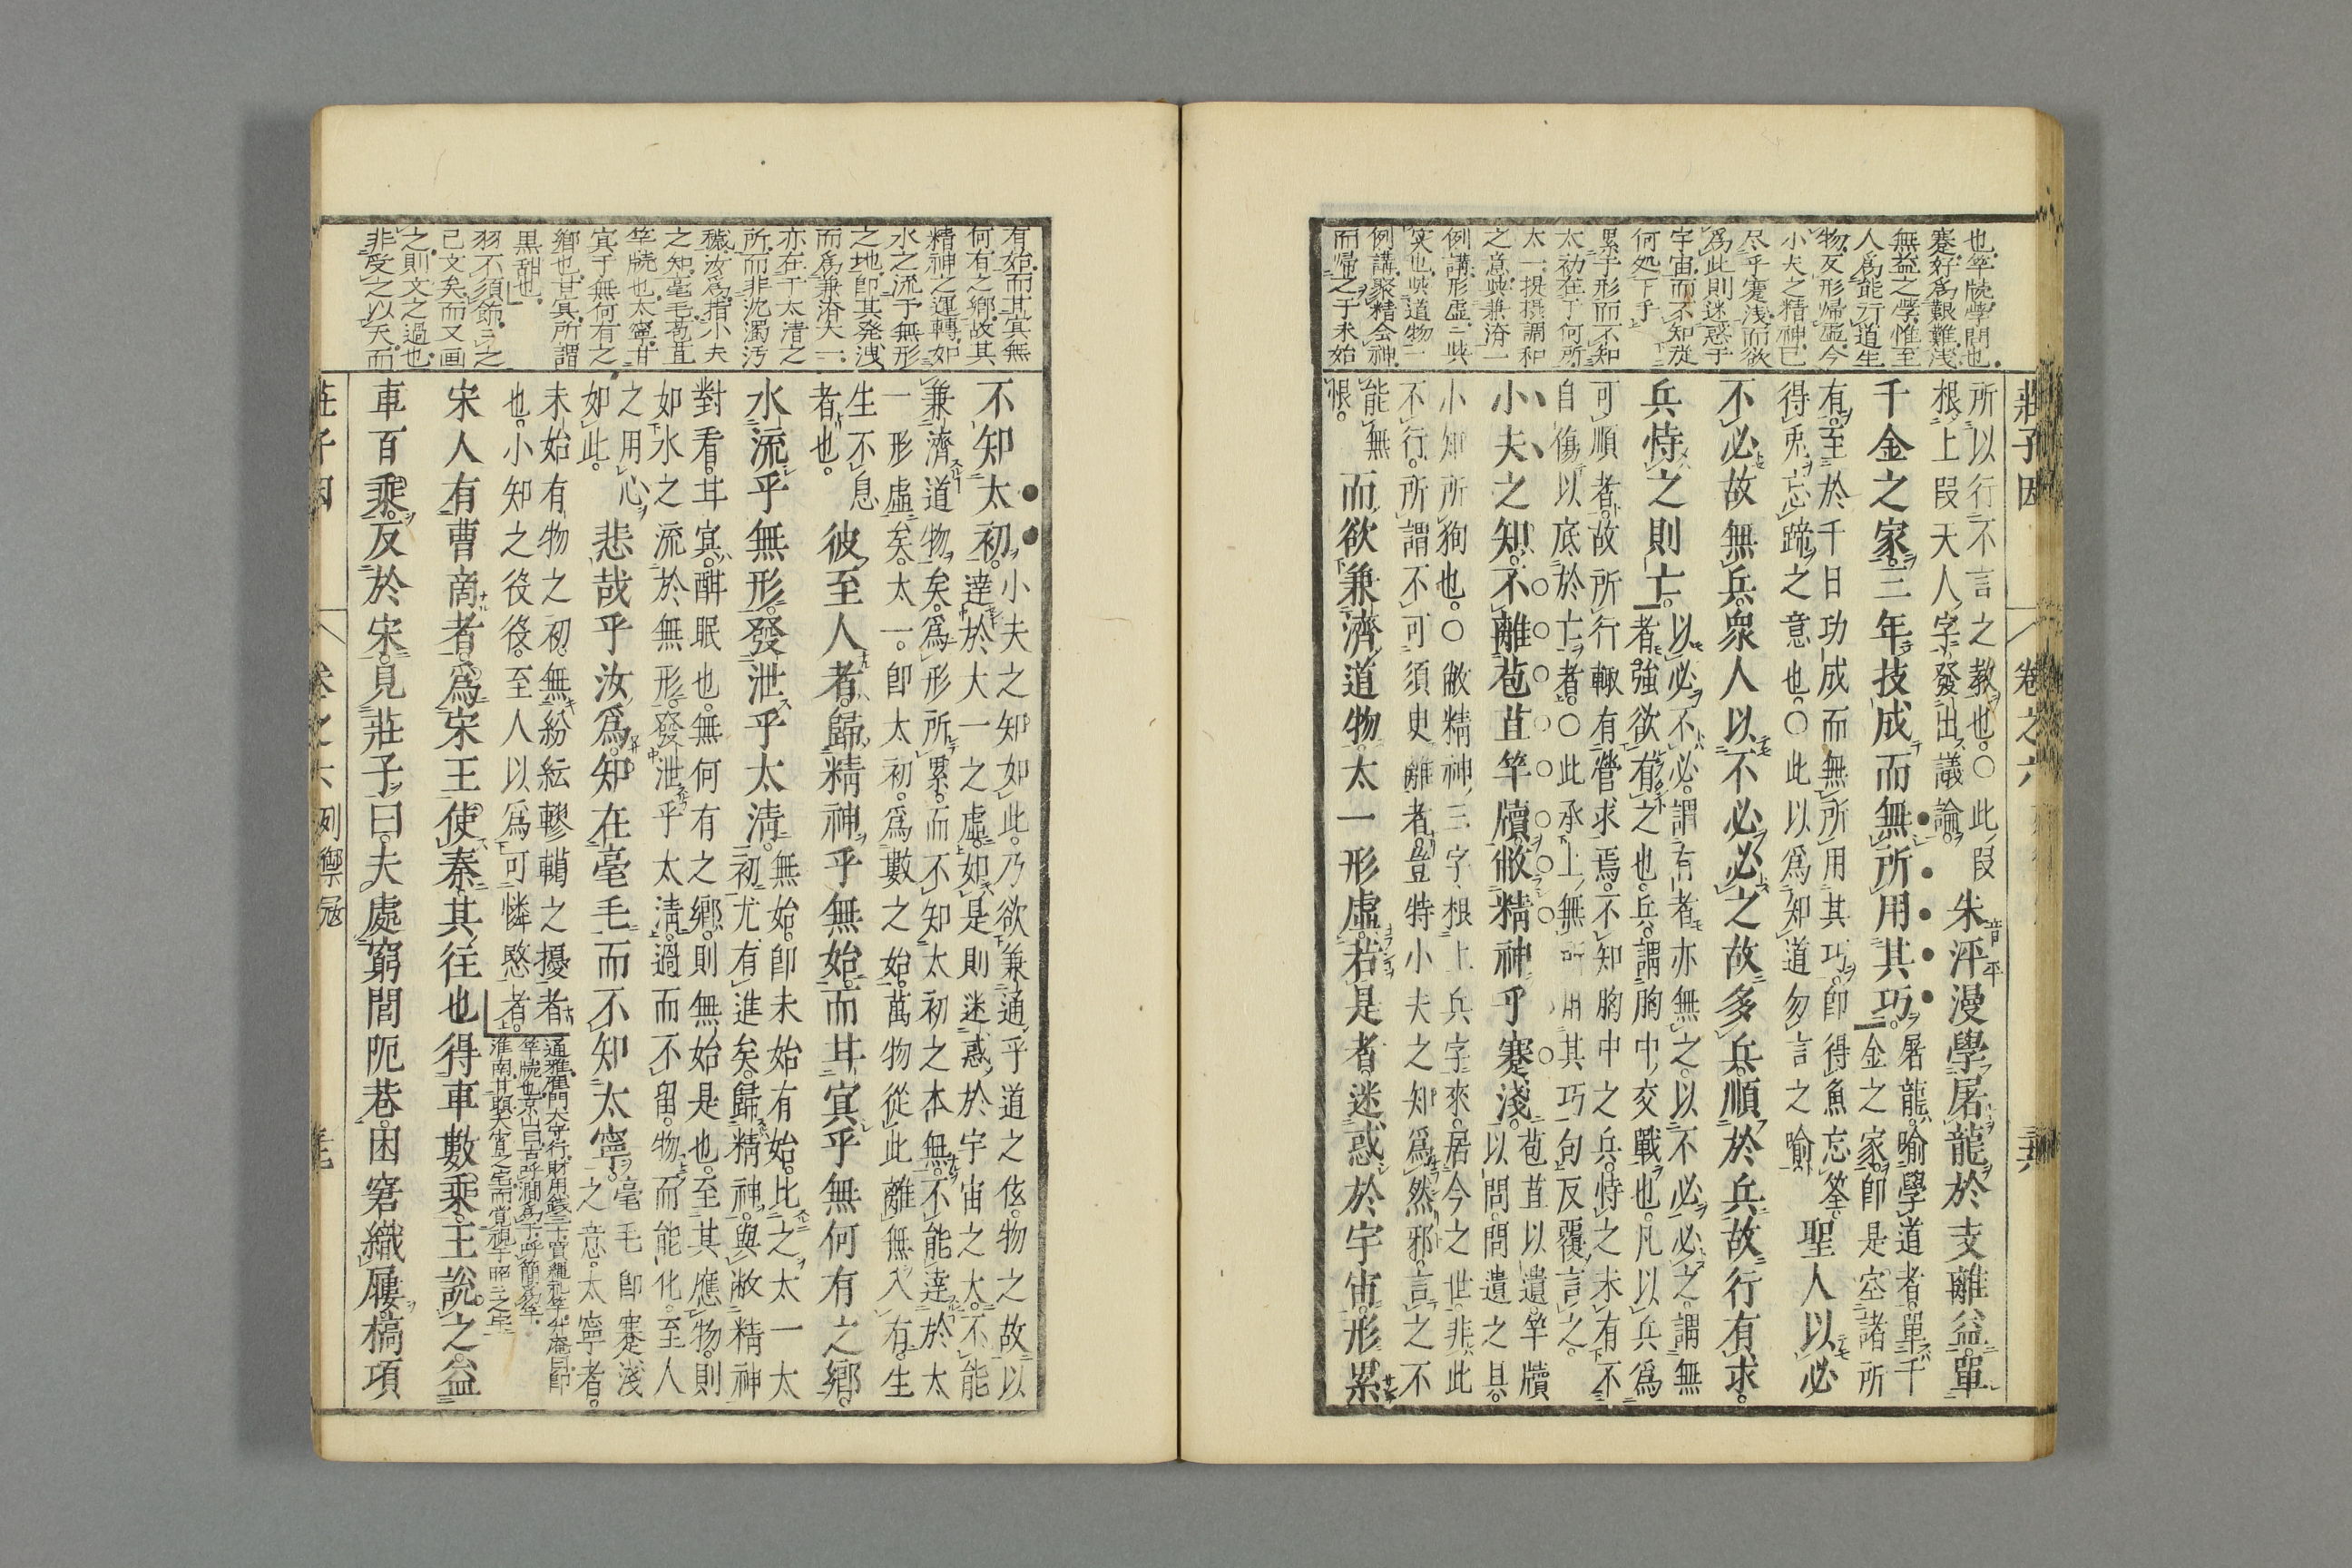 莊子因　卷之六
也竿牘學問也
蹇好爲艱難淺
無益之學惟至
人爲能行道生
物反形帰虛今
小夫之精神已
尽乎蹇淺而欲
爲此則迷惑于
宇宙而不知從
何処下手
累于形而不知
太初在于何所
太一提摂調和
之意與兼済一
例講形虛二與
也與道物一
例講聚精会神
而帰之于未始
所以行不言之教也○此段
根上段天人字發出議論
朱泙漫學屠龍於支離益單
千金之家三年技成而無所用其巧
屠龍喻學道者單千
金之家即是空諸所
有至於千日功成而無所用其巧即得魚忘筌
得兎忘蹄之意也○此以爲知道勿言之喻
聖人以必
不必故無兵衆人以不必必之故多兵順於兵故行有求
兵恃之則亡
以必不必謂有者亦無之以不必必之謂無
者強欲有之也兵謂胸中交戰也凡以兵爲
可順者故所行輙有營求焉不知胸中之兵恃之未有不
自傷以底於亡者○此承上無所用其巧一句反覆言之
小夫之知不離苞苴竿牘敝精神乎蹇淺
苞苴以遺竿牘
以問問遺之具
小知所狥也○敝精神三字根上兵字來居今之世非此
不行所謂不可須臾離者豈特小夫之知爲然邪言之不
能無
恨
而欲兼濟道物太一形虛若是者迷惑於宇宙形累
有始而其冥無
何有之鄉故其
精神之運轉如
水之流于無形
之地即其発洩
而爲兼済太一
亦在于太清之
所而非沈濁汚
穢汝爲指小夫
之知毫毛苞苴
竿牘也太寧甘
冥于無何有之
鄉也甘冥所謂
黒甜也
羽不須飾之
已文矣而又画
之則文之過也
非受之以天而
不知太初
小夫之知如此乃欲兼通乎道之依物之故以
達於大一之虛如是則迷惑於宇宙之大不能
兼濟道物矣爲形所累而不知太初之本無不能達於太
一形虛矣太一即太初爲數之始萬物從此離無入有生
生不息
者也
彼至人者歸精神乎無始而甘冥乎無何有之鄉
水流乎無形發泄乎太清
無始即未始有始比之太一太
初尤有進矣歸精神與敝精神
對看甘冥酣眠也無何有之鄉則無始是也至其應物則
如水之流於無形發泄乎太清過而不留物而能化至人
之用心
如此
悲哉乎汝爲知在毫毛而不知太寧
毫毛即蹇淺
之意太寧者
未始有物之初無紛紜轇轕之擾者
也小知之役役至人以爲可憐愍者
宋人有曹商者爲宋王使秦其往也得車數乘王說之益
車百乘反於宋見莊子曰夫處窮閭阨巷困窘織屨槁項
莊子因　卷之六　列禦寇